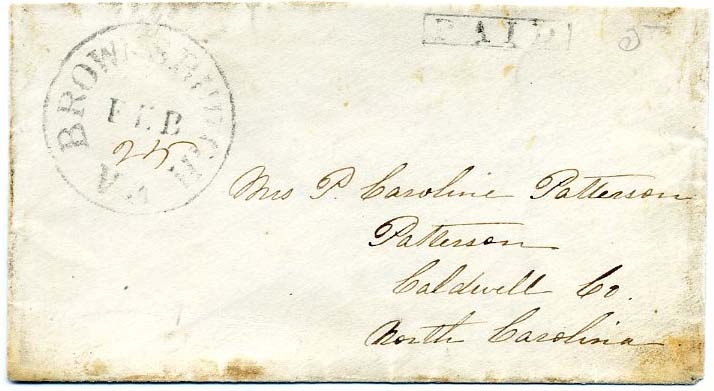 PAID
BROWNSBURGH
FEB
25
VA
Mrs P. Caroline Patterson
Patterson
Caldwell Co.
North Carolina